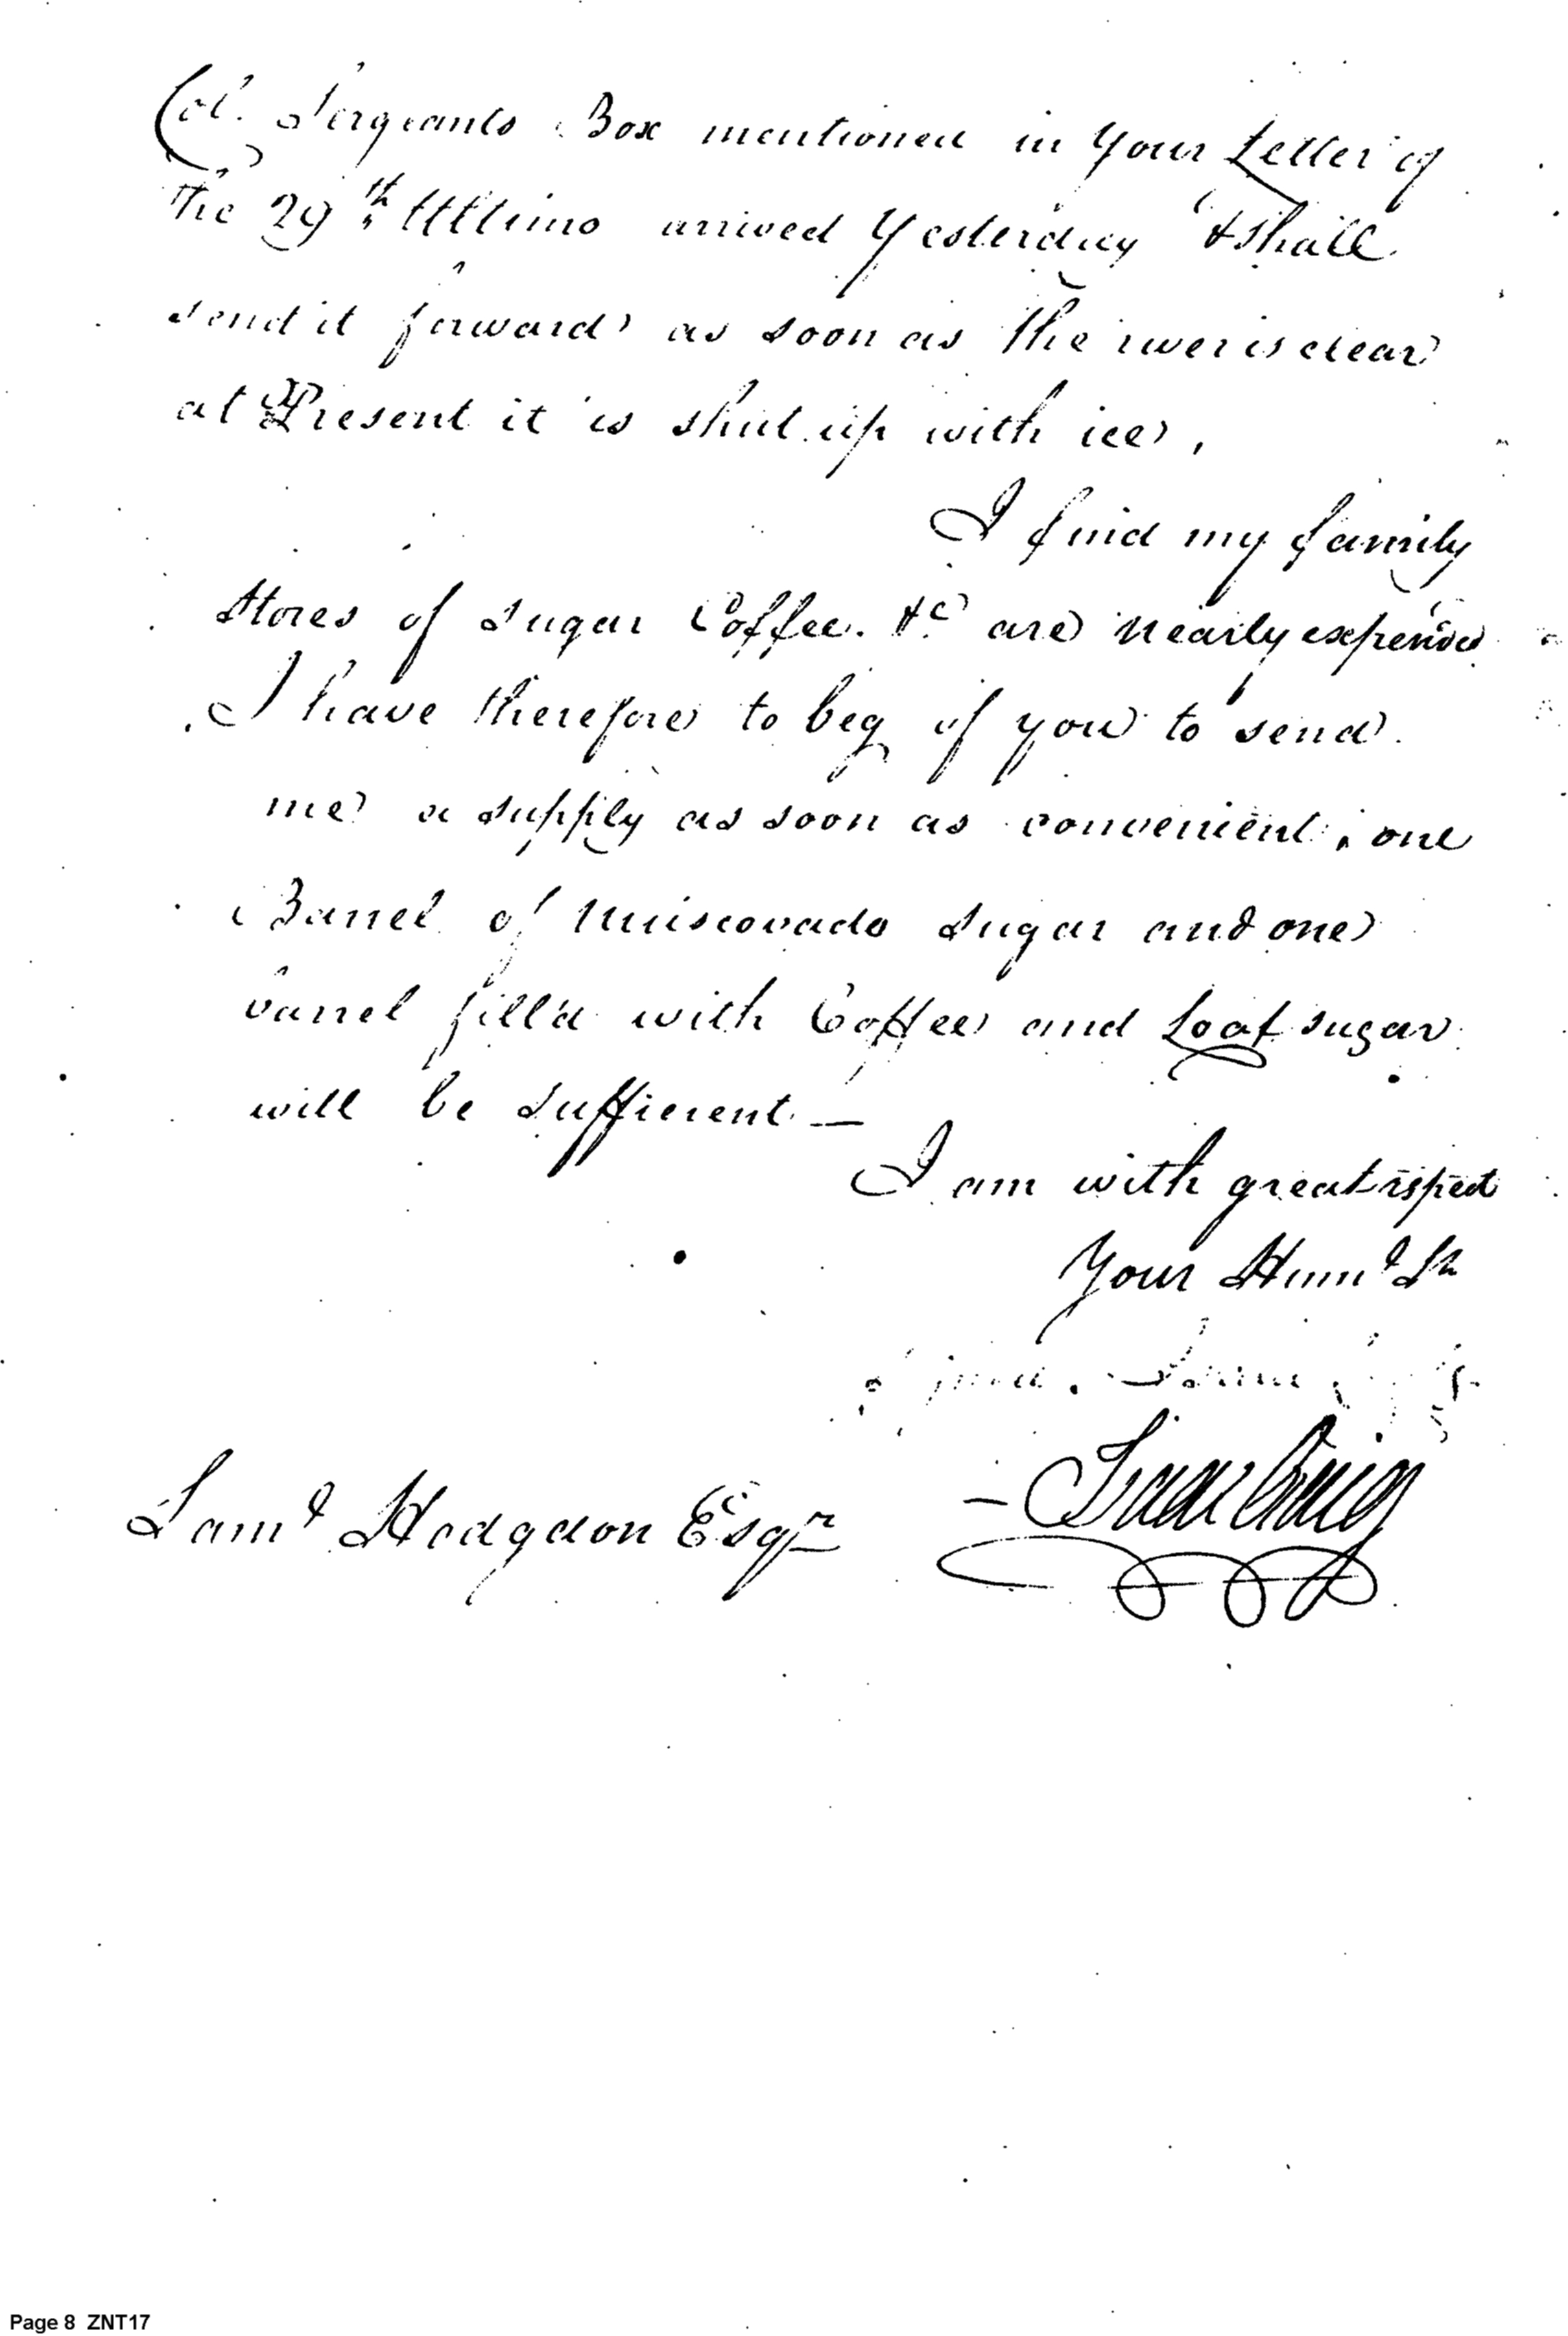 Col. Sergeants Box mentioned in Your Letter of
the 29th Ultimo arrived Yesterday & Shall
send it forward as soon as the river is clear
at Present it is shut up with ice,
I find my family
Stores of Sugar Coffee. &c are nearly expended
I have therefore to beg of you to send
me a supply as soon as convenient, one
Barrel of Muscovado Sugar and one
barrel fill'd with Coffee and Loaf sugar
will be sufficient —
I am with great respect
Your Huml St
— Isaac Craig
Saml Hodgdon Esqr
Page 8 ZNT17